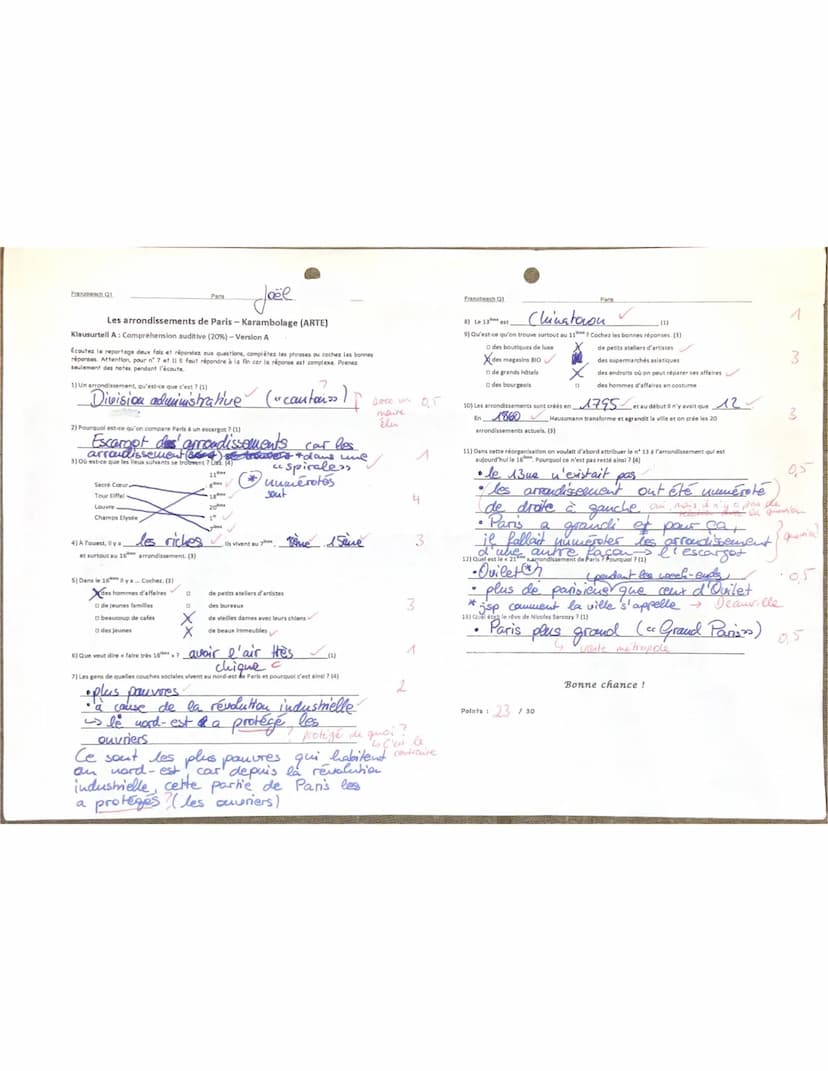 Französisch Q1 Paris Joël
Les arrondissements de Paris – Karambolage (ARTE)
Klausurteil A : Compréhension auditive (20%) – Version A
Écoutez le reportage deux fois et répondez aux questions, complétez les phrases ou cochez les bonnes
réponses. Attention, pour n° 7 et 11 il faut répondre à la fin car la réponse est complexe. Prenez
seulement des notes pendant l'écoute.
1) Un arrondissement, qu'est-ce que c'est ? (1)
Division administrative ✓ (“canton”) ?
avec un
maire
élu
0,5
2) Pourquoi est-ce qu'on compare Paris à un escargot ? (1)
Escargot d'arrondissements car les
arrondissement * dans une
«spirale» ✓ 1
* numérotés
sont
3) Où est-ce que les lieux suivants se trouvent ? (4)
11ème
Sacré Cœur 8ème ✓
Tour Eiffel 18ème ✓
Louvre 20ème
Champs Elysée 1er ✓
7ème ✓
4
4) A l'ouest, il y a les riches ✓. Ils vivent au 7ème, 8ème, 15ème
et surtout au 16ème arrondissement. (3)
3
5) Dans le 16ème il y a ... Cochez. (3)
X des hommes d'affaires ✓ □ de petits ateliers d'artistes
□ de jeunes familles □ des bureaux
□ beaucoup de cafés X de vieilles dames avec leurs chiens ✓
□ des jeunes X de beaux immeubles ✓
3
6) Que veut dire « faire très 16ème » ? avoir l'air très ✓ (1)
chique
1
7) Les gens de quelles couches sociales vivent au nord-est de Paris et pourquoi c'est ainsi ? (4)
• plus pauvres ✓
2
• à cause de la révolution industrielle ✓
↳ le nord-est a protégé les
ouvriers
? protégé de quoi ?
↳ C'est le
contraire
Ce sont les plus pauvres qui habitent
au nord-est car depuis la révolution
industrielle, cette partie de Paris les
a protégés ? (les ouvriers)
Französisch Q1 Paris
8) Le 13ème est Chinatown ✓ (1)
1
9) Qu'est-ce qu'on trouve surtout au 11ème ? Cochez les bonnes réponses. (3)
□ des boutiques de luxe X de petits ateliers d'artistes ✓
X des magasins BIO ✓ des supermarchés asiatiques
□ de grands hôtels X des endroits où on peut réparer ses affaires ✓
□ des bourgeois □ des hommes d'affaires en costume
3
10) Les arrondissements sont créés en 1795 ✓ et au début il n'y avait que 12 ✓.
En 1860 ✓ Haussmann transforme et agrandit la ville et on crée les 20
arrondissements actuels. (3)
3
11) Dans cette réorganisation on voulait d'abord attribuer le n° 13 à l'arrondissement qui est
aujourd'hui le 16ème. Pourquoi ce n'est pas resté ainsi ? (4)
• le 13me n'existait pas
0,5
• les arrondissement ont été numéroté
de droite à gauche
oui, mais il n'y a pas de
la question
• Paris a grandi et pour ça,
il fallait numéroter les arrondissement
d'une autre façon → l'escargot
12) Quel est le « 21ème » arrondissement de Paris ? Pourquoi ? (1)
• Ouilet *
(pendant les week-ends)
• plus de parisiens que ceux d'Ouilet
0,5
* jsp comment la ville s'appelle → Deauville
13) Quel était le rêve de Nicolas Sarkozy ? (1)
• Paris plus grand («Grand Paris»)
0,5
↳ vraie métropole
Bonne chance !
Points : 23 / 30